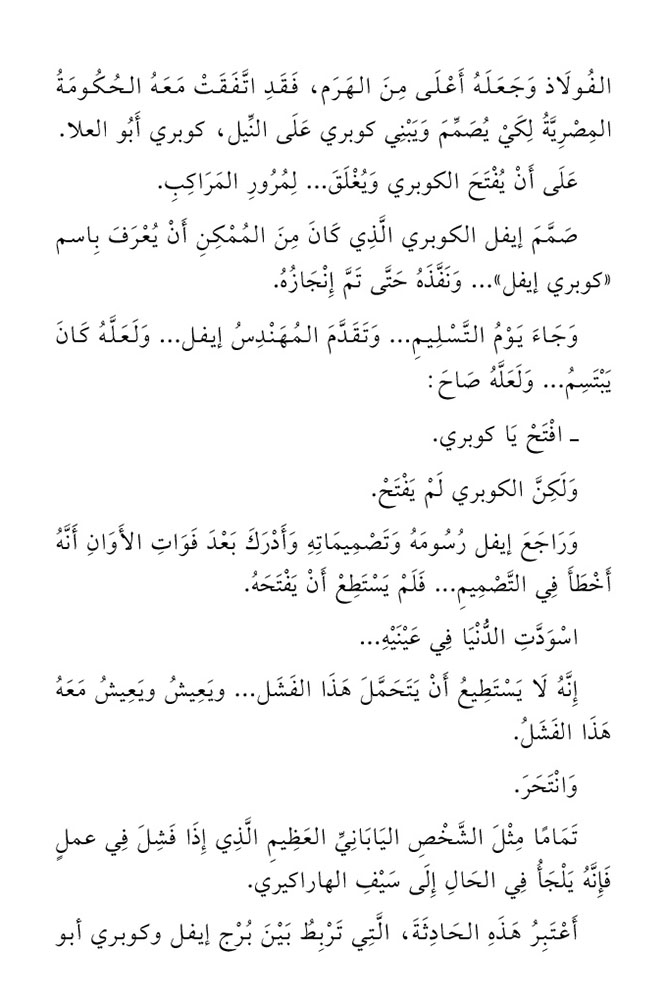 الفُولَاذ وَجَعَلَهُ أَعْلَى مِنَ الهَرَم، فَقَدِ اتَّفَقَتْ مَعَهُ الحُكُومَةُ
المِصْرِيَّةُ لِكَيْ يُصَمِّمَ وَيَبْنِي كوبري عَلَى النِّيل، كوبري أَبُو العلا.
عَلَى أَنْ يُفْتَحَ الكوبري وَيُغْلَقَ... لِمُرُورِ المَرَاكِبِ.
صَمَّمَ إيفل الكوبري الَّذِي كَانَ مِنَ المُمْكِنِ أَنْ يُعْرَفَ بِاسم
«كوبري إيفل»... وَنَفَّذَهُ حَتَّى تَمَّ إِنْجَازُهُ.
وَجَاءَ يَوْمُ التَّسْلِيمِ... وَتَقَدَّمَ المُهَنْدِسُ إيفل... وَلَعَلَّهُ كَانَ
يَبْتَسِمُ... وَلَعَلَّهُ صَاحَ:
ـ افْتَحْ يَا كوبري.
وَلَكِنَّ الكوبري لَمْ يَفْتَحْ.
وَرَاجَعَ إيفل رُسُومَهُ وَتَصْمِيمَاتِهِ وَأَدْرَكَ بَعْدَ فَوَاتِ الأَوَانِ أَنَّهُ
أَخْطَأَ فِي التَّصْمِيمِ... فَلَمْ يَسْتَطِعْ أَنْ يَفْتَحَهُ.
اسْوَدَّتِ الدُّنْيَا فِي عَيْنَيْهِ...
إِنَّهُ لَا يَسْتَطِيعُ أَنْ يَتَحَمَّلَ هَذَا الفَشَل... ويَعِيشُ ويَعِيشُ مَعَهُ
هَذَا الفَشَلُ.
وَانْتَحَرَ.
تَمَامًا مِثْلَ الشَّخْصِ اليَابَانِيِّ العَظِيمِ الَّذِي إِذَا فَشِلَ فِي عملٍ
فَإِنَّهُ يَلْجَأُ فِي الحَالِ إِلَى سَيْفِ الهاراكيري.
أَعْتَبِرُ هَذَهِ الحَادِثَةَ، الَّتِي تَرْبِطُ بَيْنَ بُرْج إيفل وكوبري أبو